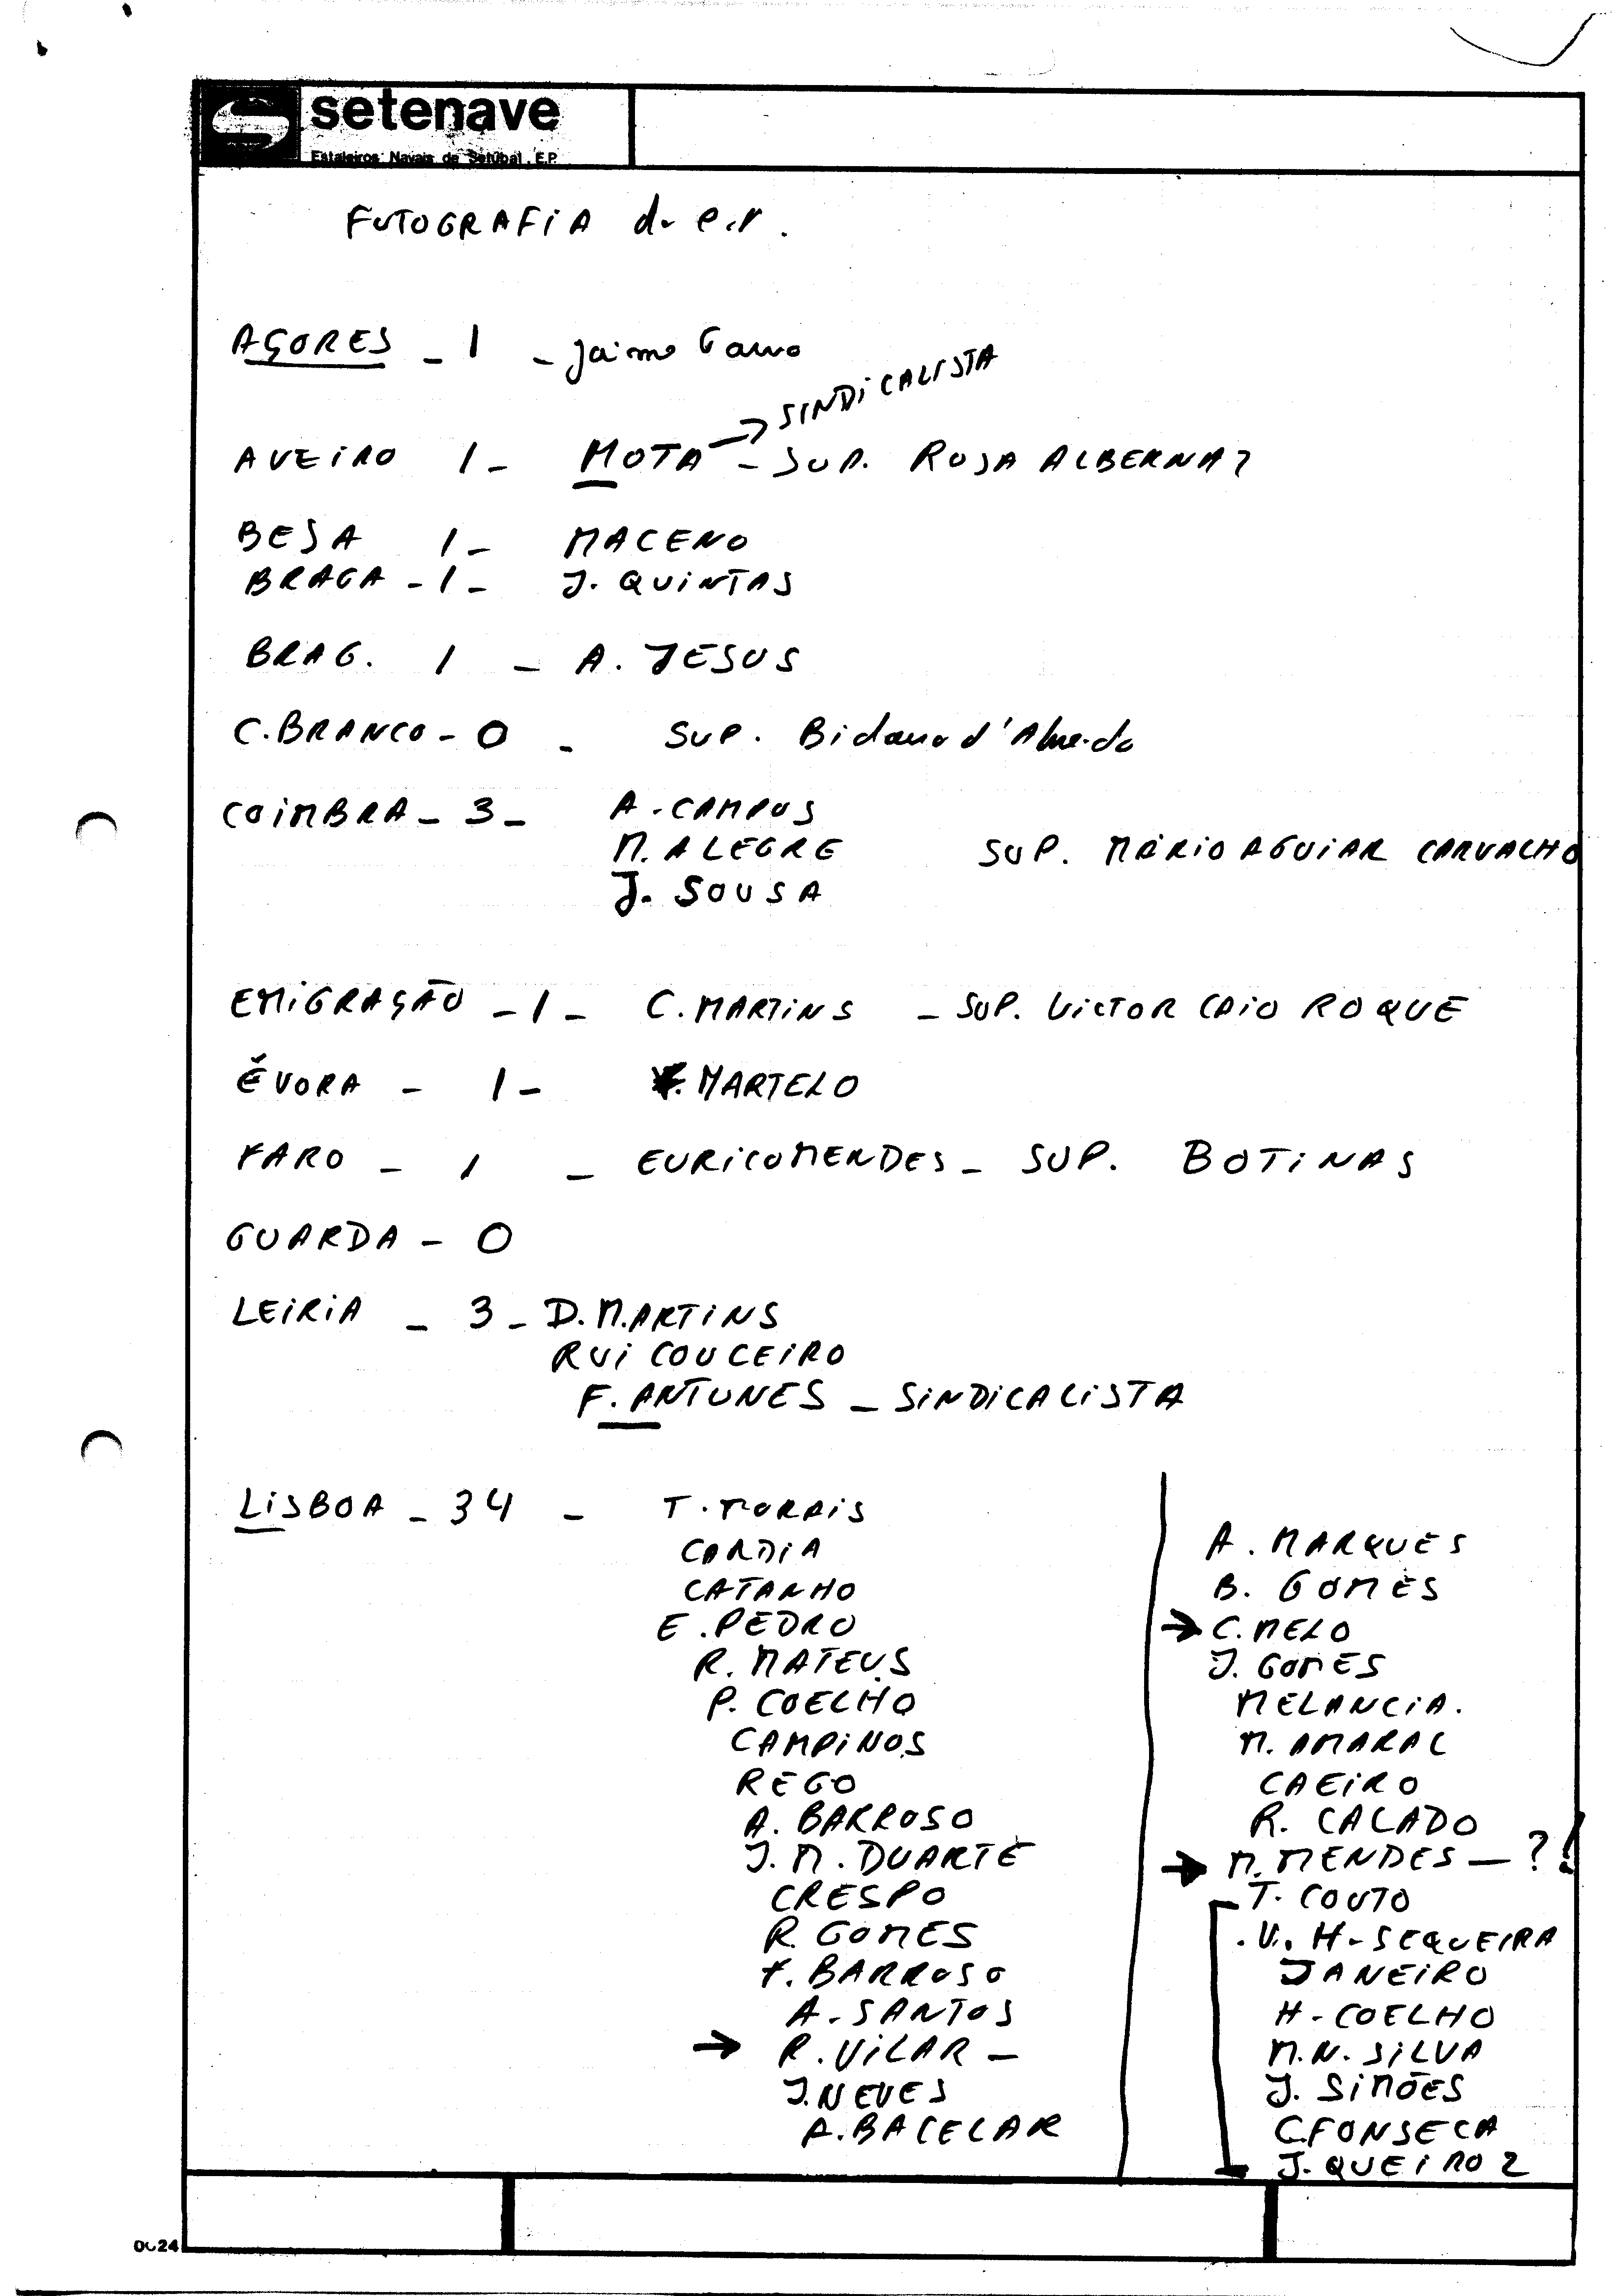 setenave
Estaleiros Navais de Setúbal, E.P.
FUTOGRAFIA do e.r.
AÇORES - 1 - Jaime Gama
SINDICALISTA
AVEIRO 1 - MOTA → - SUP. ROSA ALBERNAZ
BEJA 1 - MACENO
BRAGA - 1 - J. QUINTAS
BRAG. 1 - A. JESUS
C. BRANCO - 0 - SUP. d'Almeida
COIMBRA - 3 - A. CAMPOS
M. ALEGRE SUP. MÁRIO AGUIAR CARVALHO
J. SOUSA
EMIGRAÇÃO - 1 - C. MARTINS - SUP. VICTOR CAIO ROQUE
ÉVORA - 1 - MARTELO
FARO - 1 - EURICO MENDES - SUP. BOTINAS
GUARDA - 0
LEIRIA - 3 - D. MARTINS
RUI COUCEIRO
F. ANTUNES - SINDICALISTA
LISBOA - 34 - T. MORAIS
CARDIA
CATANHO
E. PEDRO
R. MATEUS
P. COELHO
CAMPINOS
REGO
A. BARROSO
J. M. DUARTE
CRESPO
R. GOMES
F. BARROSO
A. SANTOS
→ R. VILAR -
J. NEVES
A. BACELAR
A. MARQUES
B. GOMES
→ C. MELO
J. GOMES
MELANCIA.
M. AMARAL
CAEIRO
R. CALADO
→ M. MENDES - ?!
T. COUTO
V. H. SEQUEIRA
JANEIRO
H. COELHO
M. N. SILVA
J. SIMÕES
C. FONSECA
J. QUEIROZ
0024